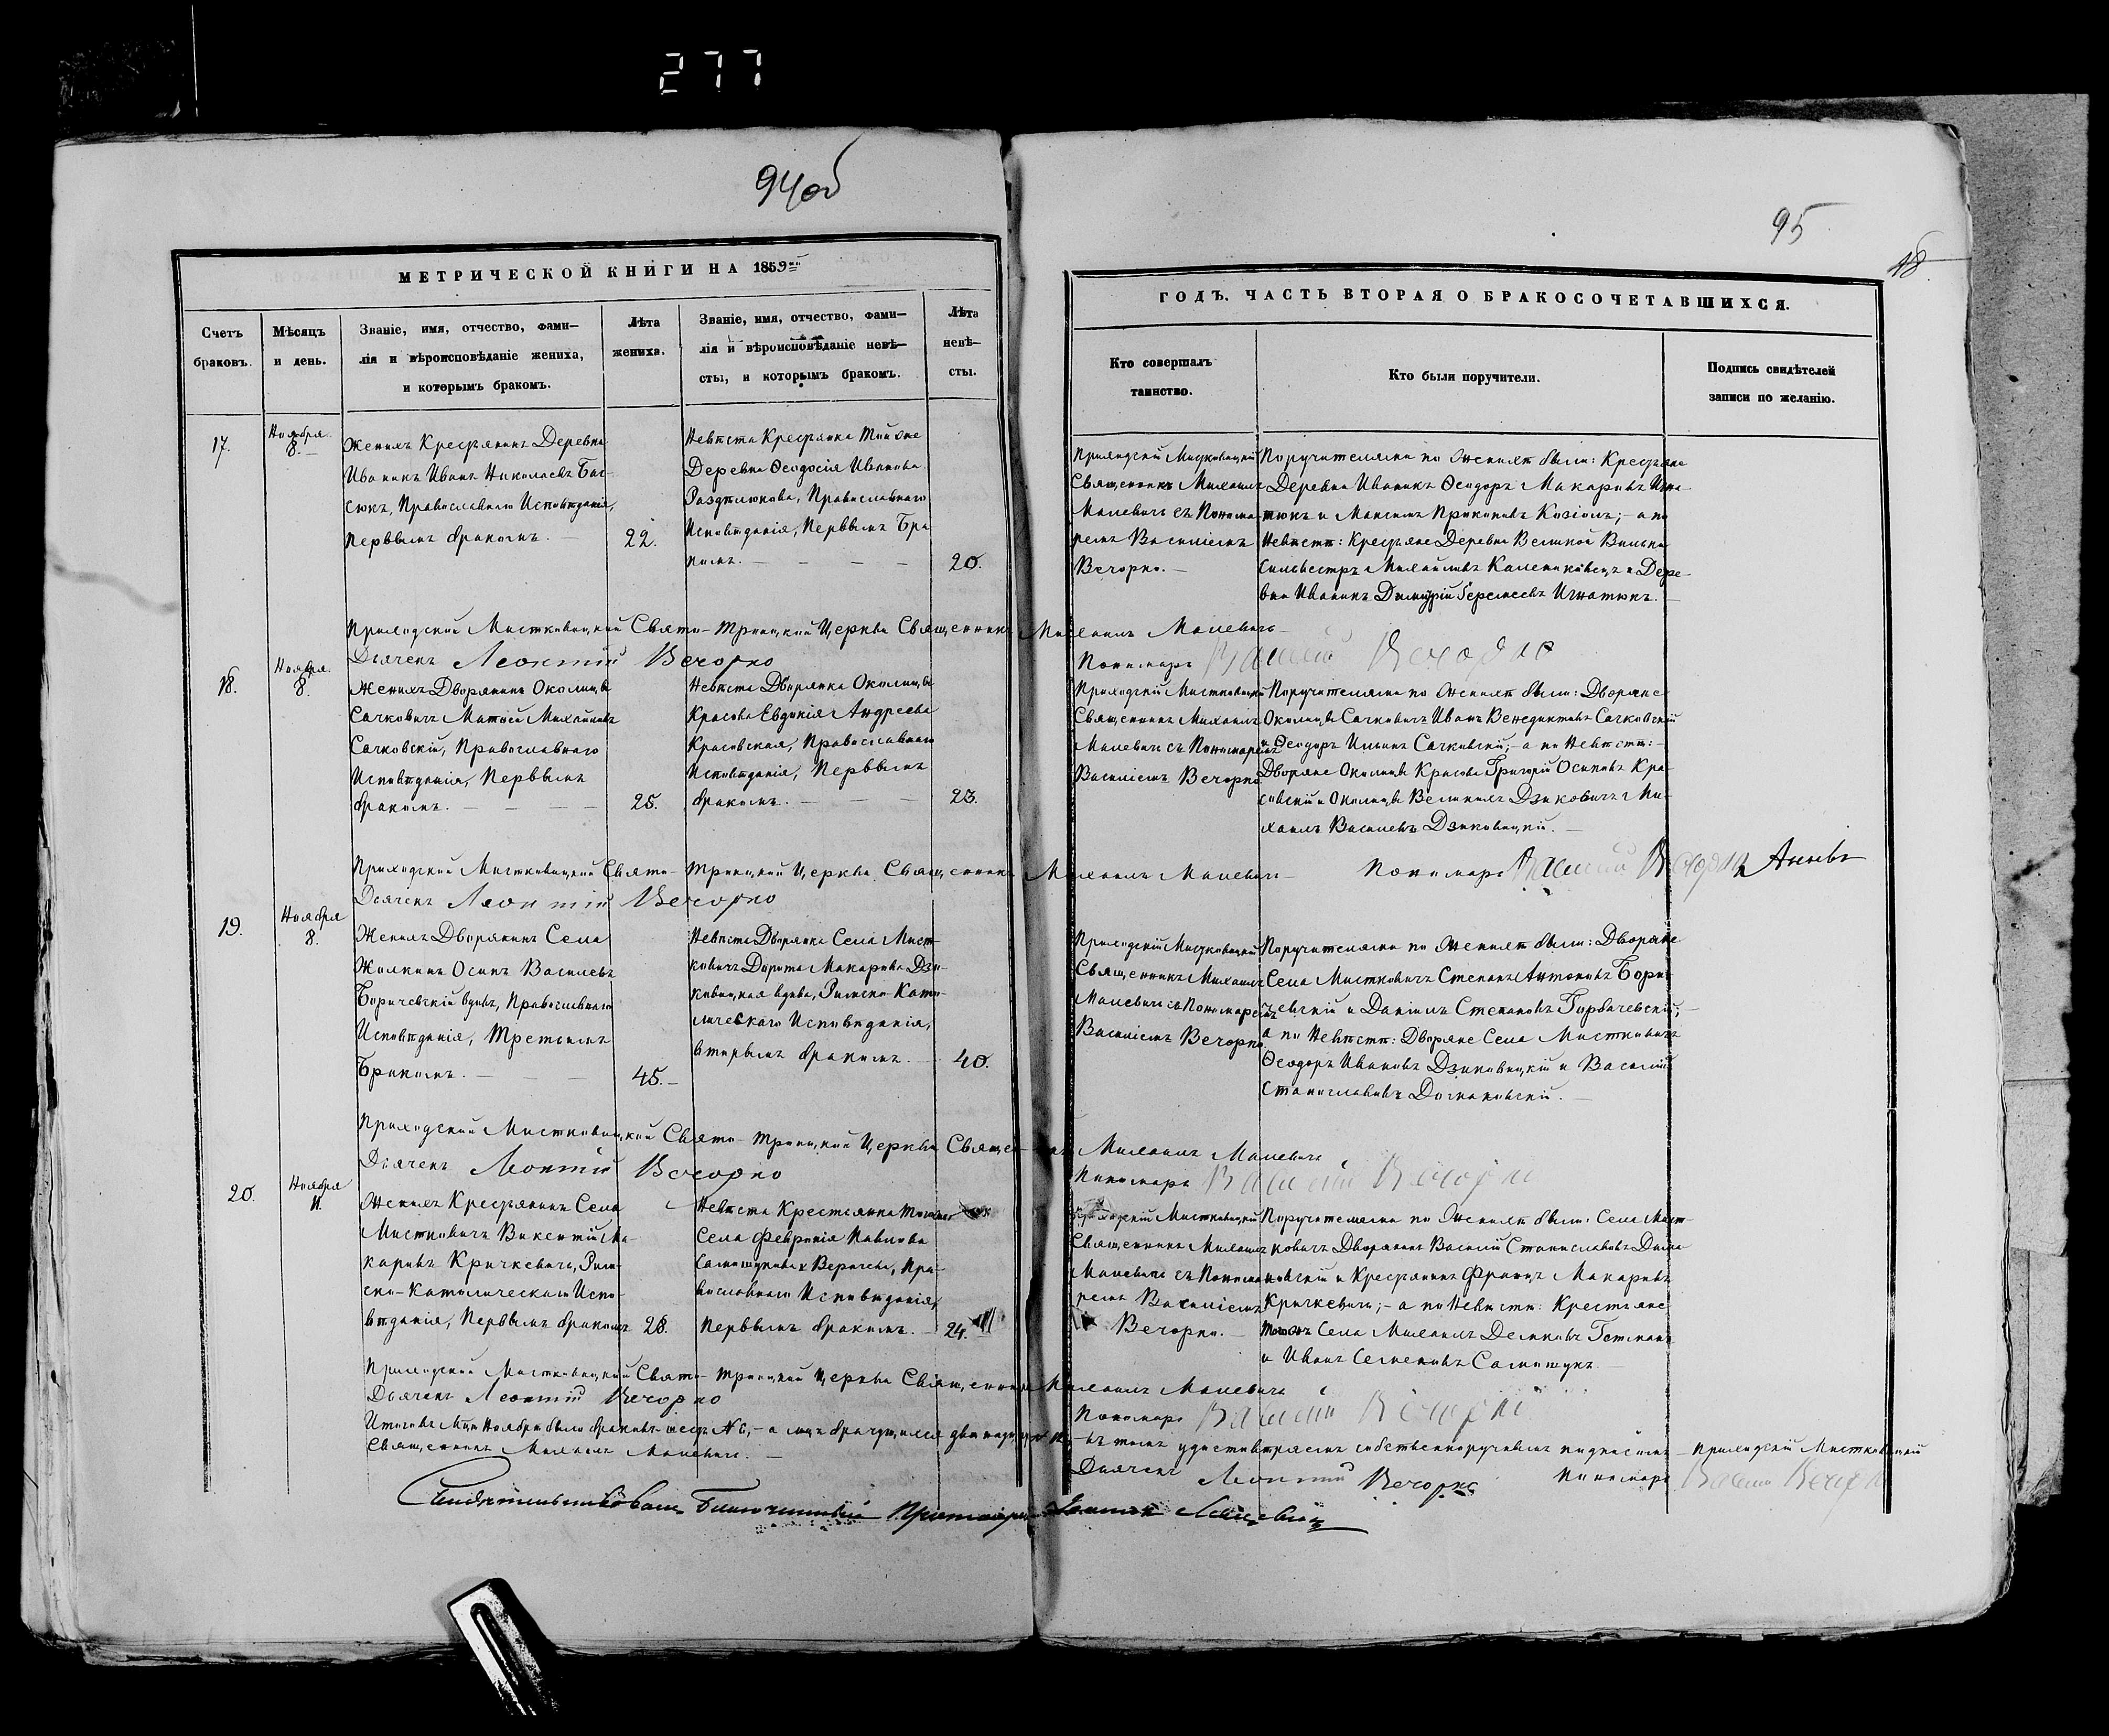 277
94об
95
18
МЕТРИЧЕСКОЙ КНИГИ НА 1859
ГОДЪ. ЧАСТЬ ВТОРАЯ О БРАКОСОЧЕТАВШИХСЯ.
Счетъ
браковъ.
Мѣсяцъ
и день.
Званіе, имя, отчество, фами–
лія и вѣроисповѣданіе жениха,
и которымъ бракомъ.
Лѣта
жениха.
Званіе, имя, отчество, фами–
лія и вѣроисповѣданіе невѣ–
сты, и которымъ бракомъ.
Лѣта
невѣ–
сты.
Кто совершалъ
таинство.
Кто были поручители.
Подпись свидѣтелей
записи по желанію.
17.
Ноября
8.
Женихъ Крестьянинъ Деревни
Иваникъ Иванъ Николаевъ Бас-
сюкъ, Православнаго Исповѣданія,
Первымъ бракомъ.
22.
Невѣста Крестьянка Той же
Деревни Ѳеодосія Иванова
Православнаго
Исповѣданія, Первымъ Бра
комъ.
20.
Приходскій Мистковицкій
Священникъ Михаилъ
Малевичъ съ Понома-
ремъ Василіемъ
Вечорко.
Поручителями по Женихѣ были: Крестьяне
Деревни Иваникъ Ѳеодоръ Макаровъ Игна-
тюкъ и Максимъ Прокоповъ Козіолъ; а по
Невѣстѣ: Крестьяне Деревни Великой
Сильвестръ Михайловъ и Дере-
вни Иваникъ Димитрій Еремеевъ Игнатюкъ.
Приходскій Мистковицкій Свято-Троицкой Церкви Священникъ Михаилъ Малевичъ
Дьячекъ Леонтій Вечорко
Пономарь Василій Вечорко
18.
Ноября
8.
Женихъ Дворянинъ Околицы
Сачковичъ Матѳей Михайловъ
Сачковскій, Православнаго
Исповѣданія, Первымъ
бракомъ.
25.
Невѣста Дворянка Околицы
Красова Евдокія Андреева
Красовская, Православнаго
Исповѣданія, Первымъ
бракомъ.
23.
Приходскій Мистковицкій
Священникъ Михаилъ
Малевичъ съ Пономаремъ
Василіемъ Вечорко
Поручителями по Женихѣ были: Дворяне
Околицы Сачковичъ Иванъ Венедиктовъ Сачковскій
и Ѳеодоръ Ильинъ Сачковскій; а по Невѣстѣ:
Дворяне Околицы Красова Григорій Осиповъ Кра-
совскій и Околицы Великихъ Дзиковичъ Ми-
хаилъ Василевъ Дзиковицкій.
Приходскій Мистковицкій Свято-Троицкой Церкви Священникъ Михаилъ Малевичъ
Пономарь Василій Вечорко
Дьячекъ Леонтій Вечорко
19.
Ноября
8.
Женихъ Дворянинъ Села
Жолкинъ Осипъ Василевъ
Боричевскій вдовъ, Православнаго
Исповѣданія, Третьимъ
Бракомъ.
45.
Невѣста Дворянка Села Мист-
ковичъ Дорота Макарова Дзи-
ковицкая вдова, Римско-Като-
лическаго Исповѣданія,
вторымъ бракомъ.
40.
Приходскій Мистковицкій
Священникъ Михаилъ
Малевичъ съ Пономаремъ
Василіемъ Вечорко
Поручителями по Женихѣ были: Дворяне
Села Мистковичъ Степанъ Антоновъ Бори-
чевскій и Даніилъ Степановъ Горбачевскій;
а по Невѣстѣ: Дворяне Села Мистковичъ
Ѳеодоръ Ивановъ Дзиковицкій и Василій
Станиславовъ Домановскій.
Приходскій Мистковицкій Свято-Троицкой Церкви Священникъ Михаилъ Малевичъ
Дьячекъ Леонтій Вечорко
Пономарь Василій Вечорко
20.
Ноября
11.
Женихъ Крестьянинъ Села
Мистковичъ Викентій Ма-
каровъ Кричкевичъ, Рим-
ско-Католическаго Испо-
вѣданія, Первымъ бракомъ
28.
Невѣста Крестьянка
Села Февронія Павлова
Пра-
вославнаго Исповѣданія,
Первымъ бракомъ.
24.
Приходскій Мистковицкій
Священникъ Михаилъ
Малевичъ съ Понома-
ремъ Василіемъ
Вечорко.
Поручителями по Женихѣ были: Села Мист-
ковичъ Дворянинъ Василій Станиславовъ Дома
новскій и Крестьянинъ Францъ Макаровъ
Кричкевичъ; а по Невѣстѣ: Крестьяне
Села Михаилъ Демковъ Гетманъ
и Иванъ Семеновъ Самошукъ.
Приходскій Мистковицкій Свято-Троицкой Церкви Священникъ Михаилъ Малевичъ
Дьячекъ Леонтій Вечорко
Пономарь Василій Вечорко
Итого въ Мцѣ Ноябрѣ было браковъ шесть № 6, а лицъ брачущихся двѣнадцать
въ томъ удостовѣряемъ собственноручнымъ подписомъ Приходскій Мистковицкій
Священникъ Михаилъ Малевичъ.
Дьячекъ Леонтій Вечорко Пономарь Василій Вечорко
Свидѣтельствовалъ Благочинный